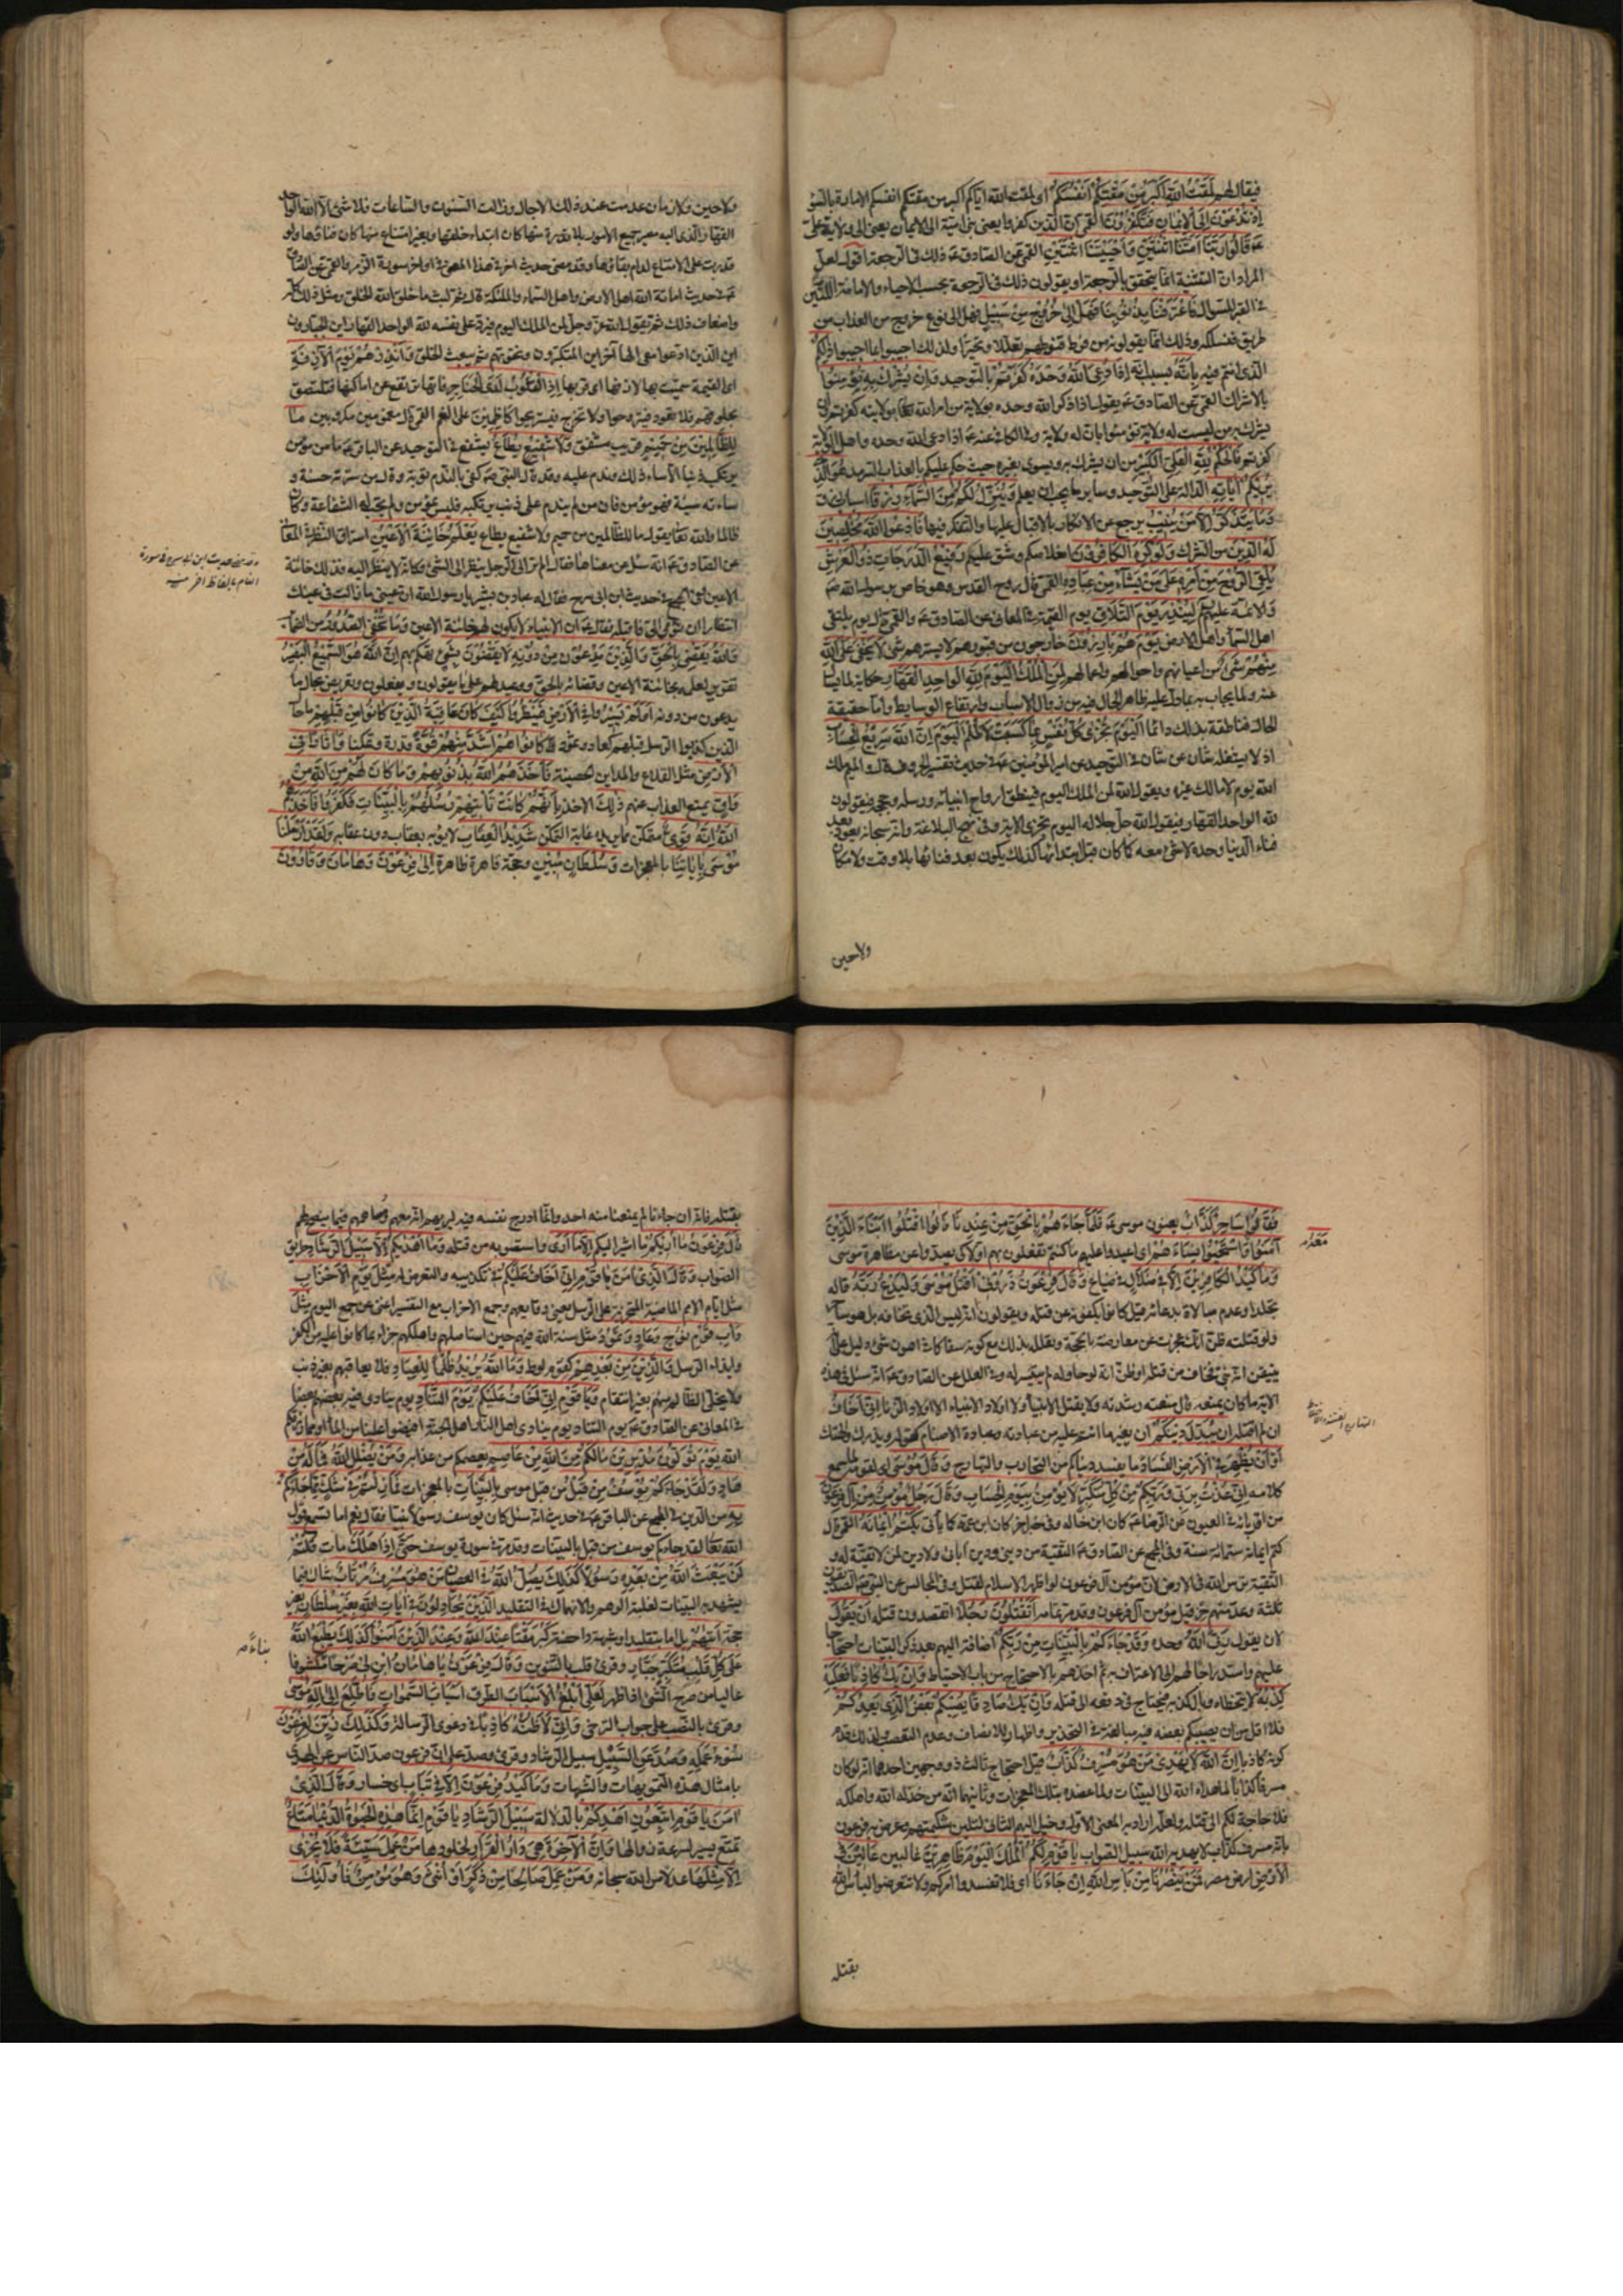 فيقال لهم لَمَقْتُ اللَّهِ أَكْبَرُ مِنْ مَقْتِكُمْ أَنْفُسَكُمْ اى لمقت الله اياكم اكبر من مقتكم انفسكم الامارة بالسوء
إِذْ تُدْعَوْنَ إِلَى الْإِيمَانِ فَتَكْفُرُونَ القمى ان الذين كفروا يعنى بنى امية الى الايمان يعنى الى ولاية على
ع قَالُوا رَبَّنَا أَمَتَّنَا اثْنَتَيْنِ وَأَحْيَيْتَنَا اثْنَتَيْنِ القمى عن الصادق ع ذلك فى الرجعة اقول لعل
المراد ان التثنية انما يتحقق بالرجعة او يقولون ذلك فى الرجعة بحسب الاحياء والاماتة اللتين
فى القبر للسؤال فَاعْتَرَفْنَا بِذُنُوبِنَا فَهَلْ إِلَى خُرُوجٍ مِنْ سَبِيلٍ فهل الى نوع خروج من العذاب من
طريق فنسلكه وذلك انما يقولونه من فرط قنوطهم تعللا وتحيرا ولذلك اجيبوا بما اجيبوا ذَلِكُمْ
الذى انتم فيه بِأَنَّهُ بسبب انه إِذَا دُعِيَ اللَّهُ وَحْدَهُ كَفَرْتُمْ بالتوحيد وَإِنْ يُشْرَكْ بِهِ تُؤْمِنُوا
بالاشراك القمى عن الصادق ع يقول اذا ذكر الله وحده بولاية من امر الله تعالى بولايته كفرتم وان
يشرك به من ليست له ولاية تؤمنوا بان له ولاية وفى الكافى عنه ع اذا دعى الله وحده واهل الولاية
كفرتم فَالْحُكْمُ لِلَّهِ الْعَلِيِّ الْكَبِيرِ من ان يشرك به ويسوى بغيره حيث حكم عليكم بالعذاب السرمد هُوَ الَّذِي
يُرِيكُمْ آيَاتِهِ الدالة على التوحيد وساير ما يجب ان يعلم وَيُنَزِّلُ لَكُمْ مِنَ السَّمَاءِ رِزْقًا اسباب رزق
وَمَا يَتَذَكَّرُ إِلَّا مَنْ يُنِيبُ يرجع عن الانكار بالاقبال عليها والتفكر فيها فَادْعُوا اللَّهَ مُخْلِصِينَ
لَهُ الدِّينَ من الشرك وَلَوْ كَرِهَ الْكَافِرُونَ اخلاصكم وشق عليهم رَفِيعُ الدَّرَجَاتِ ذُو الْعَرْشِ
يُلْقِي الرُّوحَ مِنْ أَمْرِهِ عَلَى مَنْ يَشَاءُ مِنْ عِبَادِهِ القمى قال روح القدس وهو خاص برسول الله ص
والائمة عليهم لِيُنْذِرَ يَوْمَ التَّلَاقِ يوم القيمة فى المعانى عن الصادق ع والقمى قال يوم يلتقى
اهل السماء واهل الارض يَوْمَ هُمْ بَارِزُونَ خارجون من قبورهم لا يسترهم شئ لَا يَخْفَى عَلَى اللَّهِ
مِنْهُمْ شَيْءٌ من اعيانهم واحوالهم واعمالهم لِمَنِ الْمُلْكُ الْيَوْمَ لِلَّهِ الْوَاحِدِ الْقَهَّارِ حكاية لما يسأل
عنه ولما يجاب به بما دل عليه ظاهر الحال فيه من زوال الاسباب وارتفاع الوسايط واما حقيقة
الحال فناطقة بذلك دائما الْيَوْمَ تُجْزَى كُلُّ نَفْسٍ بِمَا كَسَبَتْ لَا ظُلْمَ الْيَوْمَ إِنَّ اللَّهَ سَرِيعُ الْحِسَابِ
اذ لا يشغله شان عن شان فى التوحيد عن امير المؤمنين ع فى حديث تفسير الحروف قال والميم ملك
الله يوم لا مالك غيره ويقول الله لمن الملك اليوم فينطق ارواح انبيائه ورسله وحججه فيقولون
لله الواحد القهار فيقول الله جل جلاله اليوم تجزى الاية وفى نهج البلاغة وانه سبحانه يعود بعد
فناء الدنيا وحده لا شئ معه كما كان قبل ابتدائها كذلك يكون بعد فنائها بلا وقت ولا مكان
ولا حين
ولا حين ولا زمان عدمت عند ذلك الاجال وزالت السنون والساعات فلا شئ الا الله الواحد
القهار الذى اليه مصير جميع الامور بلا قدرة منها كان ابتداء خلقها وبغير امتناع منها كان فناؤها ولو
قدرت على الامتناع لدام بقاؤها وقد مضى حديث اخر فى هذا المعنى فى اواخر سورة الزمر والقمى عن الصادق
ع فى حديث اماتة الله اهل الارض واهل السماء والملئكة قال ثم لبث مثل ما خلق الله الخلق ومثل ذلك كله
واضعاف ذلك ثم يقول الله عز وجل لمن الملك اليوم فيرد على نفسه لله الواحد القهار اين الجبارون
اين الذين ادعوا معى الها آخر اين المتكبرون ونخوتهم ثم يبعث الخلق وَأَنْذِرْهُمْ يَوْمَ الْآزِفَةِ
اى القيمة سميت بها لازفها اى قربها إِذِ الْقُلُوبُ لَدَى الْحَنَاجِرِ فانها ترتفع عن اماكنها فتلتصق
بحلوقهم فلا تعود فيتروحوا ولا تخرج فيستريحوا كَاظِمِينَ على الغم القمى قال مغمومين مكروبين مَا
لِلظَّالِمِينَ مِنْ حَمِيمٍ قريب مشفق وَلَا شَفِيعٍ يُطَاعُ يشفع فى التوحيد عن الباقر ع ما من مؤمن
يرتكب ذنبا الا ساءه ذلك وندم عليه وقد قال النبى ص كفى بالندم توبة وقال من سرته حسنة و
ساءته سيئة فهو مؤمن فان من لم يندم على ذنب يرتكبه فليس بمؤمن ولم تجب له الشفاعة وكان
ظالما والله تعالى يقول ما للظالمين من حميم ولا شفيع يطاع يَعْلَمُ خَائِنَةَ الْأَعْيُنِ استراق النظر فى المعانى
عن الصادق ع انه سئل عن معناها فقال الم تر الى الرجل ينظر الى الشئ وكانه لا ينظر اليه فذلك خائنة
الاعين وفى المجمع فى حديث ابن ابى سرح فقال له عباد بن بشير يا رسول الله ان عينى ما زالت فى عينك
انتظار ان تومى الى فاقتله فقال ع ان الانبياء لا يكون لهم خائنة الاعين وَمَا تُخْفِي الصُّدُورُ من الضمائر
وَاللَّهُ يَقْضِي بِالْحَقِّ وَالَّذِينَ يَدْعُونَ مِنْ دُونِهِ لَا يَقْضُونَ بِشَيْءٍ تهكم بهم إِنَّ اللَّهَ هُوَ السَّمِيعُ الْبَصِيرُ
تقرير لعلمه بخائنة الاعين وقضائه بالحق ووعيد لهم على ما يقولون ويفعلون وتعريض بحال ما
يدعون من دونه أَوَلَمْ يَسِيرُوا فِي الْأَرْضِ فَيَنْظُرُوا كَيْفَ كَانَ عَاقِبَةُ الَّذِينَ كَانُوا مِنْ قَبْلِهِمْ مآل حال
الذين كذبوا الرسل قبلهم كعاد وثمود كَانُوا هُمْ أَشَدَّ مِنْهُمْ قُوَّةً قدرة وتمكنا وَآثَارًا فِي
الْأَرْضِ مثل القلاع والمداين الحصينة فَأَخَذَهُمُ اللَّهُ بِذُنُوبِهِمْ وَمَا كَانَ لَهُمْ مِنَ اللَّهِ مِنْ
وَاقٍ يمنع العذاب عنهم ذَلِكَ الاخذ بِأَنَّهُمْ كَانَتْ تَأْتِيهِمْ رُسُلُهُمْ بِالْبَيِّنَاتِ فَكَفَرُوا فَأَخَذَهُمُ
اللَّهُ إِنَّهُ قَوِيٌّ متمكن مما يريده غاية التمكن شَدِيدُ الْعِقَابِ لا يوبه بعقاب دون عقابه وَلَقَدْ أَرْسَلْنَا
مُوسَى بِآيَاتِنَا بالمعجزات وَسُلْطَانٍ مُبِينٍ وحجة قاهرة ظاهرة إِلَى فِرْعَوْنَ وَهَامَانَ وَقَارُونَ
فَقَالُوا سَاحِرٌ كَذَّابٌ يعنون موسى ع فَلَمَّا جَاءَهُمْ بِالْحَقِّ مِنْ عِنْدِنَا قَالُوا اقْتُلُوا أَبْنَاءَ الَّذِينَ
آمَنُوا مَعَهُ وَاسْتَحْيُوا نِسَاءَهُمْ اى اعيدوا عليهم ما كنتم تفعلون بهم اولا كى يصدوا عن مظاهرة موسى
وَمَا كَيْدُ الْكَافِرِينَ إِلَّا فِي ضَلَالٍ فى ضياع وَقَالَ فِرْعَوْنُ ذَرُونِي أَقْتُلْ مُوسَى وَلْيَدْعُ رَبَّهُ قاله
تجلدا وعدم مبالاة بدعائه قيل كانوا يكفونه عن قتله ويقولون انه ليس الذى تخافه بل هو ساحر
ولو قتلته ظن انك عجزت عن معارضته بالحجة وتعلله بذلك مع كونه سفاكا فى اهون شئ دليل على انه
تيقن انه نبى فخاف من قتله او ظن انه لو حاوله لم يتيسر له وفى العلل عن الصادق ع انه سئل فى هذه
الاية ما كان يمنعه قال منعته رشدته ولا يقتل الانبياء ولا اولاد الانبياء الا اولاد الزنا إِنِّي أَخَافُ
ان لم اقتله أَنْ يُبَدِّلَ دِينَكُمْ ان يغير ما انتم عليه من عبادته وعبادة الاصنام كقوله ويذرك والهتك
أَوْ أَنْ يُظْهِرَ فِي الْأَرْضِ الْفَسَادَ ما يفسد دنياكم من التحارب والتهارج وَقَالَ مُوسَى اى لقومه لما سمع
كلامه إِنِّي عُذْتُ بِرَبِّي وَرَبِّكُمْ مِنْ كُلِّ مُتَكَبِّرٍ لَا يُؤْمِنُ بِيَوْمِ الْحِسَابِ وَقَالَ رَجُلٌ مُؤْمِنٌ مِنْ آلِ فِرْعَوْنَ
من اقربائه فى العيون عن الرضا ع كان ابن خاله وفى خبر اخر كان ابن عمه كما يأتى يَكْتُمُ إِيمَانَهُ القمى قال
كتم ايمانه ستمائة سنة وفى المجمع عن الصادق ع التقية من دينى ودين آبائى ولا دين لمن لا تقية له و
التقية ترس الله فى الارض لان مؤمن آل فرعون لو اظهر الاسلام لقتل وفى المجالس عن النبى ص الصديقون
ثلثة وعد منهم حزقيل مؤمن آل فرعون وقد مر تمامه أَتَقْتُلُونَ رَجُلًا اتقصدون قتله أَنْ يَقُولَ
لان يقول رَبِّيَ اللَّهُ وحده وَقَدْ جَاءَكُمْ بِالْبَيِّنَاتِ مِنْ رَبِّكُمْ اضافه اليهم بعد ذكر البينات احتجاجا
عليهم واستدراجا لهم الى الاعتراف به ثم اخذهم بالاحتجاج من باب الاحتياط وَإِنْ يَكُ كَاذِبًا فَعَلَيْهِ
كَذِبُهُ لا يتخطاه وبال كذبه فيحتاج فى دفعه الى قتله وَإِنْ يَكُ صَادِقًا يُصِبْكُمْ بَعْضُ الَّذِي يَعِدُكُمْ
فلا اقل من ان يصيبكم بعضه فيه مبالغة فى التحذير واظهار للانصاف وعدم التعصب ولذلك قدم
كونه كاذبا إِنَّ اللَّهَ لَا يَهْدِي مَنْ هُوَ مُسْرِفٌ كَذَّابٌ قيل احتجاج ثالث ذو وجهين احدهما انه لو كان
مسرفا كذابا لما هداه الله الى البينات ولما عضده بتلك المعجزات وثانيهما ان من خذله الله واهلكه
فلا حاجة لكم الى قتله ولعله اراد به المعنى الاول وخيل اليهم الثانى لتلين شكيمتهم وعرض به فرعون
بانه مسرف كذاب لا يهديه الله سبيل الصواب يَا قَوْمِ لَكُمُ الْمُلْكُ الْيَوْمَ ظَاهِرِينَ غالبين عالين فِي
الْأَرْضِ ارض مصر فَمَنْ يَنْصُرُنَا مِنْ بَأْسِ اللَّهِ إِنْ جَاءَنَا اى فلا تفسدوا امركم ولا تتعرضوا لبأس الله
بقتله
مَعَهُ
بقتله فانه ان جاءنا لم يمنعنا منه احد وانما ادرج نفسه فيه ليريهم انه معهم ومساهمهم فيما ينصح لهم
قَالَ فِرْعَوْنُ مَا أُرِيكُمْ ما اشير اليكم إِلَّا مَا أَرَى واستصوبه من قتله وَمَا أَهْدِيكُمْ إِلَّا سَبِيلَ الرَّشَادِ طريق
الصواب وَقَالَ الَّذِي آمَنَ يَا قَوْمِ إِنِّي أَخَافُ عَلَيْكُمْ فى تكذيبه والتعرض له مِثْلَ يَوْمِ الْأَحْزَابِ
مثل ايام الامم الماضية المتحزبة على الرسل يعنى وقايعهم وجمع الاحزاب مع التفسير اغنى عن جمع اليوم مِثْلَ
دَأْبِ قَوْمِ نُوحٍ وَعَادٍ وَثَمُودَ مثل سنة الله فيهم حين استاصلهم واهلكهم جزاء بما كانوا عليه من الكفر
وايذاء الرسل وَالَّذِينَ مِنْ بَعْدِهِمْ كقوم لوط وَمَا اللَّهُ يُرِيدُ ظُلْمًا لِلْعِبَادِ فلا يعاقبهم بغير ذنب
ولا يخلى الظالم منهم بغير انتقام وَيَا قَوْمِ إِنِّي أَخَافُ عَلَيْكُمْ يَوْمَ التَّنَادِ يوم ينادى فيه بعضهم بعضا
فى المعانى عن الصادق ع يوم التناد يوم ينادى اهل النار اهل الجنة افيضوا علينا من الماء او مما رزقكم
الله يَوْمَ تُوَلُّونَ مُدْبِرِينَ مَا لَكُمْ مِنَ اللَّهِ مِنْ عَاصِمٍ يعصمكم من عذابه وَمَنْ يُضْلِلِ اللَّهُ فَمَا لَهُ مِنْ
هَادٍ وَلَقَدْ جَاءَكُمْ يُوسُفُ مِنْ قَبْلُ من قبل موسى بِالْبَيِّنَاتِ بالمعجزات فَمَا زِلْتُمْ فِي شَكٍّ مِمَّا جَاءَكُمْ
بِهِ من الدين فى المجمع عن الباقر ع فى حديث انه سئل كان يوسف رسولا نبيا فقال نعم اما تسمع قول
الله تعالى لقد جاءكم يوسف من قبل بالبينات وقد مر فى سورة يوسف حَتَّى إِذَا هَلَكَ مات قُلْتُمْ
لَنْ يَبْعَثَ اللَّهُ مِنْ بَعْدِهِ رَسُولًا كَذَلِكَ يُضِلُّ اللَّهُ فى العصيان مَنْ هُوَ مُسْرِفٌ مُرْتَابٌ شاك فيما
يشهد به البينات لغلبة الوهم والانهماك فى التقليد الَّذِينَ يُجَادِلُونَ فِي آيَاتِ اللَّهِ بِغَيْرِ سُلْطَانٍ بغير
حجة أَتَاهُمْ بل اما بتقليد او شبهة داحضة كَبُرَ مَقْتًا عِنْدَ اللَّهِ وَعِنْدَ الَّذِينَ آمَنُوا كَذَلِكَ يَطْبَعُ اللَّهُ
عَلَى كُلِّ قَلْبِ مُتَكَبِّرٍ جَبَّارٍ وقرئ قلب بالتنوين وَقَالَ فِرْعَوْنُ يَا هَامَانُ ابْنِ لِي صَرْحًا مكشوفا
عاليا من صرح الشئ اذا ظهر لَعَلِّي أَبْلُغُ الْأَسْبَابَ الطرق أَسْبَابَ السَّمَوَاتِ فَأَطَّلِعَ إِلَى إِلَهِ مُوسَى
وقرئ بالنصب على جواب الترجى وَإِنِّي لَأَظُنُّهُ كَاذِبًا فى دعوى الرسالة وَكَذَلِكَ زُيِّنَ لِفِرْعَوْنَ
سُوءُ عَمَلِهِ وَصُدَّ عَنِ السَّبِيلِ سبيل الرشاد وقرئ وصد على ان فرعون صد الناس عن الهدى
بامثال هذه التمويهات والشبهات وَمَا كَيْدُ فِرْعَوْنَ إِلَّا فِي تَبَابٍ اى خسار وَقَالَ الَّذِي
آمَنَ يَا قَوْمِ اتَّبِعُونِ أَهْدِكُمْ بالدلالة سَبِيلَ الرَّشَادِ يَا قَوْمِ إِنَّمَا هَذِهِ الْحَيَوةُ الدُّنْيَا مَتَاعٌ
تمتع يسير لسرعة زوالها وَإِنَّ الْآخِرَةَ هِيَ دَارُ الْقَرَارِ لخلودها مَنْ عَمِلَ سَيِّئَةً فَلَا يُجْزَى
إِلَّا مِثْلَهَا عدلا من الله سبحانه وَمَنْ عَمِلَ صَالِحًا مِنْ ذَكَرٍ أَوْ أُنْثَى وَهُوَ مُؤْمِنٌ فَأُولَئِكَ